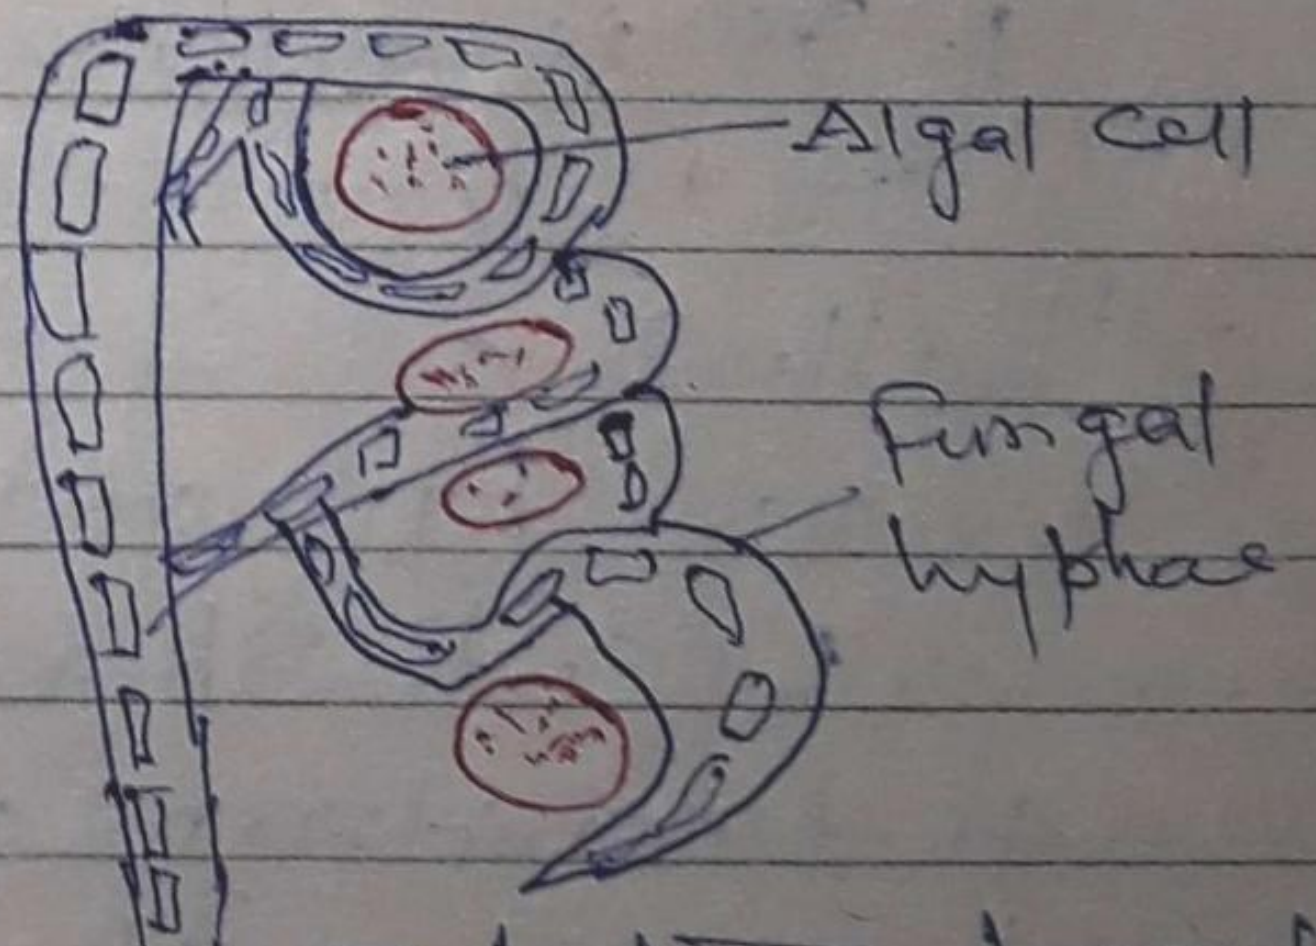 Algal Cell
Fungal
hyphae